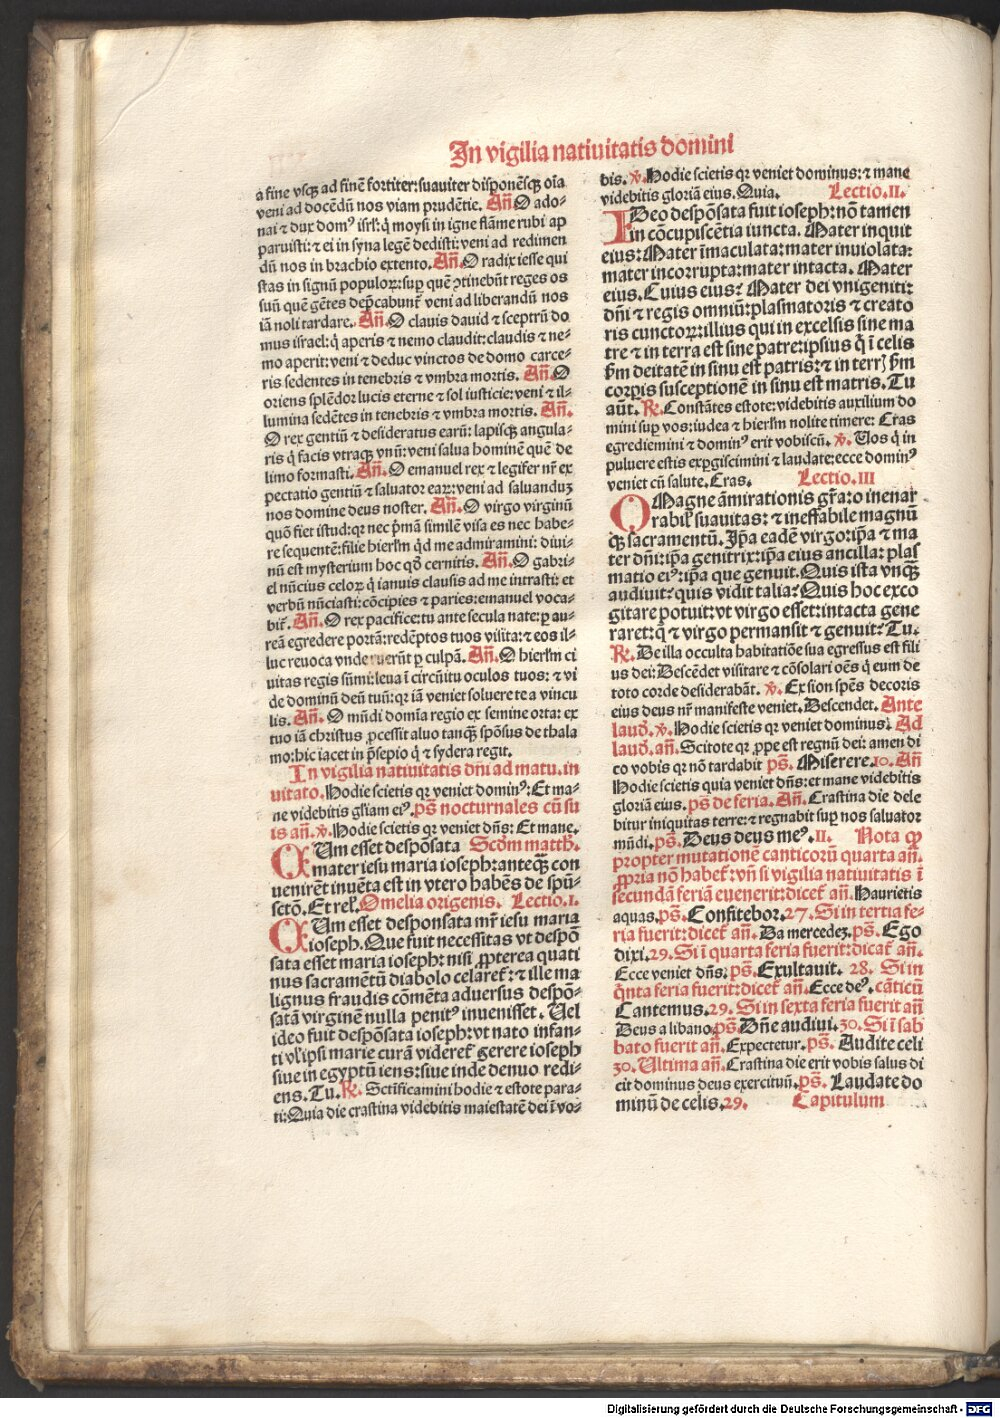 In vigilia natiuitatis domini
a fine vsqꝫ ad finē fortiter: suauiter disponēsqꝫ oīa
veni ad docēdū nos viam prudētie. Añ. O ado-
nai ⁊ dux domꝰ isrl': q̇ moysi in igne flāme rubi ap
paruisti: ⁊ ei in syna legē dedisti: veni ad redimen
dū nos in brachio extento. Añ. O radix iesse qui
stas in signū populoꝝ: suꝑ quē ꝯtinebūt reges os
suū quē gētes dep̄cabunt᷑ veni ad liberandū nos
iā noli tardare. Añ. O clauis dauid ⁊ sceptrū do
mus israel: q̇ aperis ⁊ nemo claudit: claudis ⁊ ne-
mo aperit: veni ⁊ deduc vinctos de domo carce-
ris sedentes in tenebris ⁊ vmbra mortis. Añ. O
oriens splēdor lucis eterne ⁊ sol iusticie: veni ⁊ il-
lumina sedētes in tenebris ⁊ vmbra mortis. Añ.
O rex gentiū ⁊ desideratus earū: lapisqꝫ angula-
ris q̇ facis vtraqꝫ vnū: veni salua hominē quē de
limo formasti. Añ. O emanuel rex ⁊ legifer nr̄ ex
pectatio gentiū ⁊ saluator eaꝝ: veni ad saluanduꝫ
nos domine deus noster. Añ. O virgo virginū
quō fiet istud: qꝛ nec p̄mā similē visa es nec habe-
re sequentē: filie hierl'm q̇d me admiramini: diui-
nū est mysterium hoc qđ cernitis. Añ. O gabri-
el nūcius celoꝝ q̇ ianuis clausis ad me intrasti: et
verbū nūciasti: cōcipies ⁊ paries: emanuel voca-
bit᷑. Añ. O rex pacifice: tu ante secula nate: ꝑ au-
reā egredere portā: redēptos tuos visita: ⁊ eos il-
luc reuoca vnde ruerūt ꝑ culpā. Añ. O hierl'm ci
uitas regis sūmi: leua ī circūitu oculos tuos: ⁊ vi
de dominū deū tuū: qꝛ iā veniet soluere te a vincu
lis. Añ. O mūdi domīa regio ex semine orta: ex
tuo iā christus ꝓcessit aluo tanqꝫ spōsus de thala
mo: hic iacet in p̄sepio q̇ ⁊ sydera regit.
In vigilia natiuitatis dn̄i ad matu. in
uitato. Hodie scietis qꝛ veniet dominꝰ: Et ma-
ne videbitis gl'iam eiꝰ. ps̄ nocturnales cū su
is añ. ℣. Hodie scietis qꝛ veniet dn̄s: Et mane.
CUm esset despōsata Scd'm matth'.
mater iesu maria ioseph: anteqꝫ con
uenirēt inuēta est in vtero habēs de spū-
sctō. Et rel'. Omelia origenis. Lectio.I.
CUm esset desponsata mr̄ iesu maria
ioseph. Que fuit necessitas vt despō
sata esset maria ioseph: nisi ꝓpterea quati
nus sacramētū diabolo celaret᷑: ⁊ ille ma
lignus fraudis cōmēta aduersus despō-
satā virginē nulla penitꝰ inuenisset. Uel
ideo fuit despōsata ioseph: vt nato infan-
ti vl' ipsi marie curā videret᷑ gerere ioseph
siue in egyptū iens: siue inde denuo redi-
ens. Tu. ℟. Sctīficamini hodie ⁊ estote para-
ti: Quia die crastina videbitis maiestatē dei ī vo-
bis. ℣. Hodie scietis qꝛ veniet dominus: ⁊ mane
videbitis gloriā eius. Quia. Lectio.II.
IDeo despōsata fuit ioseph: nō tamen
in cōcupiscētia iuncta. Mater inquit
eius: Mater īmaculata: mater inuiolata:
mater incorrupta: mater intacta. Mater
eius. Cuius eius? Mater dei vnigeniti:
dn̄i ⁊ regis omniū: plasmatoris ⁊ creato
ris cunctoꝝ: illius qui in excelsis sine ma
tre ⁊ in terra est sine patre: ipsius q̇ ī celis
ẜm deitatē in sinu est patris: ⁊ in terꝭ ẜm
corpis susceptionē in sinu est matris. Tu
aūt. ℟. Constātes estote: videbitis auxilium do
mini suꝑ vos: iudea ⁊ hierl'm nolite timere: Cras
egrediemini ⁊ dominꝰ erit vobiscū. ℣. Uos q̇ in
puluere estis exꝑgiscimini ⁊ laudate: ecce dominꝰ
veniet cū salute. Cras. Lectio.III
O Magne āmirationis gr̄a: o inenar
rabil' suauitas: ⁊ ineffabile magnū
qꝫ sacramentū. Ip̄a eadē virgo: ip̄a ⁊ ma
ter dn̄i: ip̄a genitrix: ip̄a eius ancilla: plas
matio eiꝰ: ip̄a que genuit. Quis ista vnqꝫ
audiuit? quis vidit talia? Quis hoc exco
gitare potuit: vt virgo esset: intacta gene
raret: q̇ ⁊ virgo permansit ⁊ genuit? Tu.
℟. De illa occulta habitatiōe sua egressus est fili
us dei: Descēdet visitare ⁊ cōsolari oēs q̇ eum de
toto corde desiderabāt. ℣. Ex sion spēs decoris
eius deus nr̄ manifeste veniet. Descendet. Ante
laud'. ℣. Hodie scietis qꝛ veniet dominus: Ad
laud'. añ. Scitote qꝛ ꝓpe est regnū dei: amen di
co vobis qꝛ nō tardabit ps̄. Miserere.10. Añ
Hodie scietis quia veniet dn̄s: et mane videbitis
gloriā eius. ps̄ de feria. Añ. Crastina die dele
bitur iniquitas terre: ⁊ regnabit suꝑ nos saluator
mūdi. ps̄. Deus deus meꝰ.II. Nota ꝙ
propter mutationē canticorū quarta añ.
ꝓpria nō habet᷑: vn̄ si vigilia natiuitatis ī
secundā feriā euenerit: dicet᷑ añ. Haurietis
aquas. ps̄. Confitebor.27. Si in tertia fe-
ria fuerit: dicet᷑ añ. Da mercedeꝫ. ps̄. Ego
dixi.29. Si ī quarta feria fuerit: dicat᷑ añ.
Ecce veniet dn̄s: ps̄. Exultauit. 28. Si in
q̇nta feria fuerit: dicet᷑ añ. Ecce deꝰ. cāticū
Cantemus.29. Si in sexta feria fuerit añ
Deus a libano. ps̄. Dn̄e audiui.30. Si ī sab
bato fuerit añ. Expectetur. ps̄. Audite celi
30. Ultima añ. Crastina die erit vobis salus di
cit dominus deus exercituū. ps̄. Laudate do
minū de celis.29. Capitulum
Digitalisierung gefördert durch die Deutsche Forschungsgemeinschaft - DFG